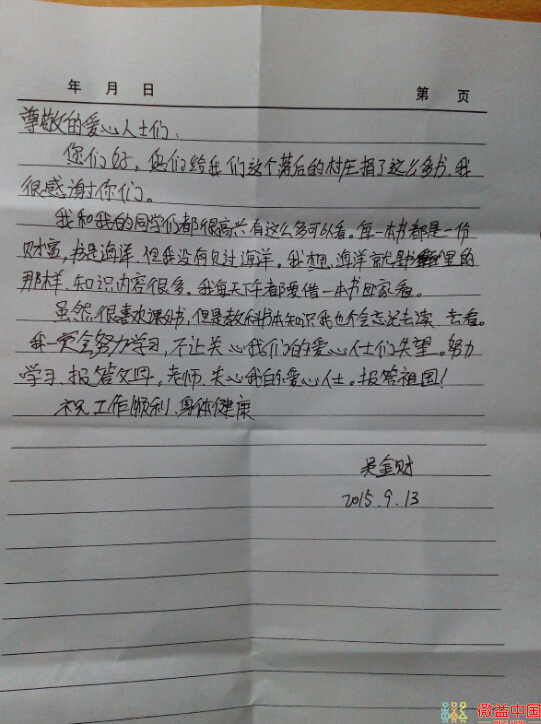 年 月 日 第 页
尊敬的爱心人士们：
您们好，您们给我们这个落后的村庄捐了这么多书，我
很感谢你们。
我和我的同学们都很高兴有这么多可以看。每一本书都是一份
财富，书是海洋，但我没有见过海洋。我想，海洋就是书里的
那样，知识内容很多。我每天下午都要借一本书回家看。
虽然很喜欢课外书，但是教科书本知识我也不会忘记去读、去看。
我一定会努力学习，不让关心我们的爱心人士们失望。努力
学习，报答父母，老师，关心我的爱心人士。报答祖国！
祝工作顺利，身体健康
吴金财
2015.9.13
微益中国